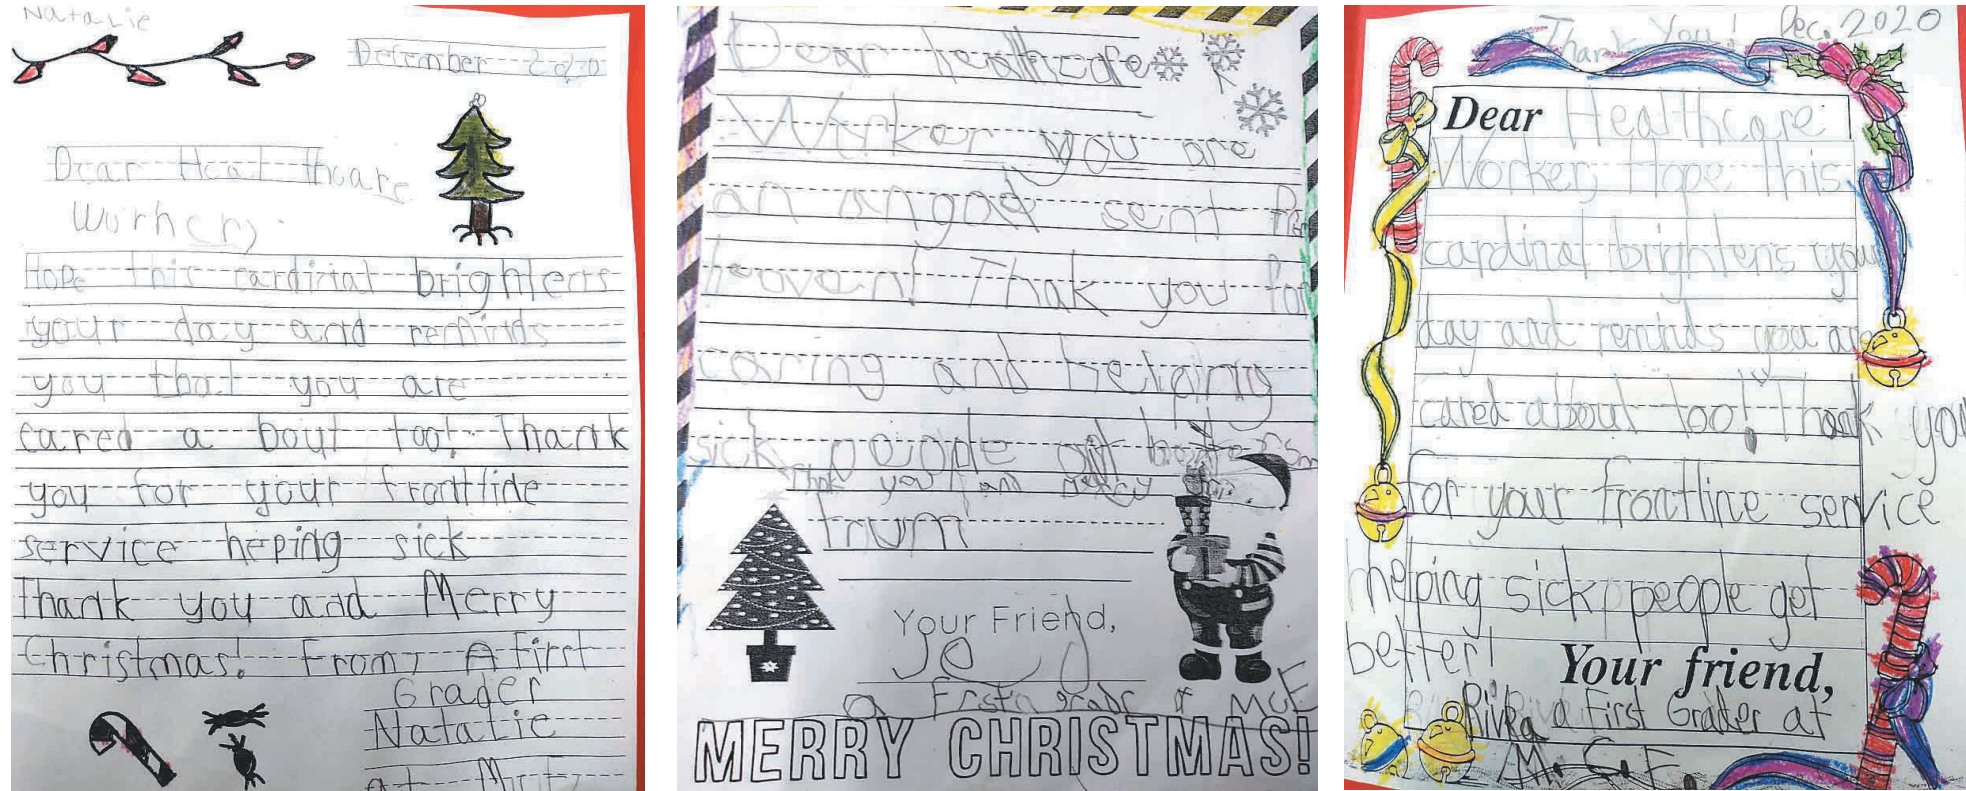 Natalie
December 2020
Dear Healthcare
Worker,
Hope this cardinal brightens
your day and reminds
you that you are
cared a bout too! Thank
you for your frontline
service heping sick
Thank you and Merry
Christmas! From, A first
Grader
Natalie
at
Dear
Worker you are
an sent
heaven! Thak you for
caring and helping
sick people get
Thak you and
frum
Your Friend,
a grade MCE
MERRY CHRISTMAS!
Thank You! Dec. 2020
Dear Healthcare
Worker, Hope this
cardinal brightens you
day and reminds you are
cared about too! Thank you
for your frontline service
helping sick people get
better!
Your friend,
Rivka a First Grader at
M.C.E.